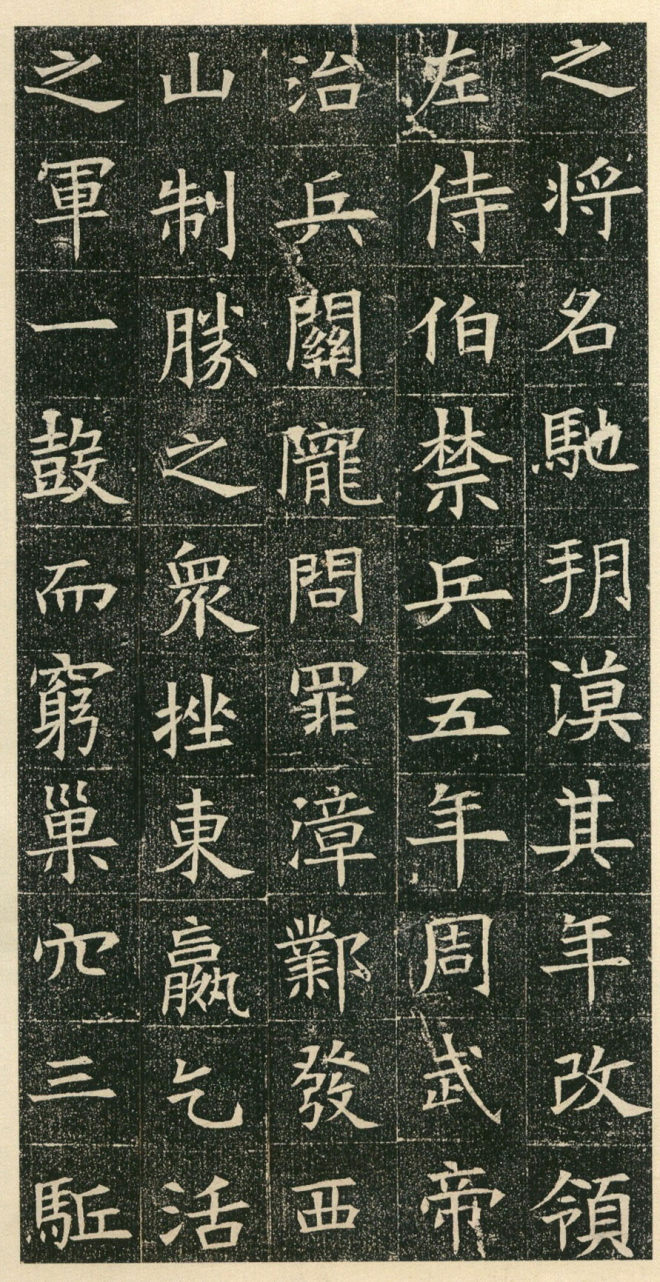 之将名馳玥漠其年改領
左侍伯禁兵五年周武帝
治兵關隴問罪漳鄴發西
山制勝之衆挫東嬴乞活
之軍一鼓而窮巢穴三駈